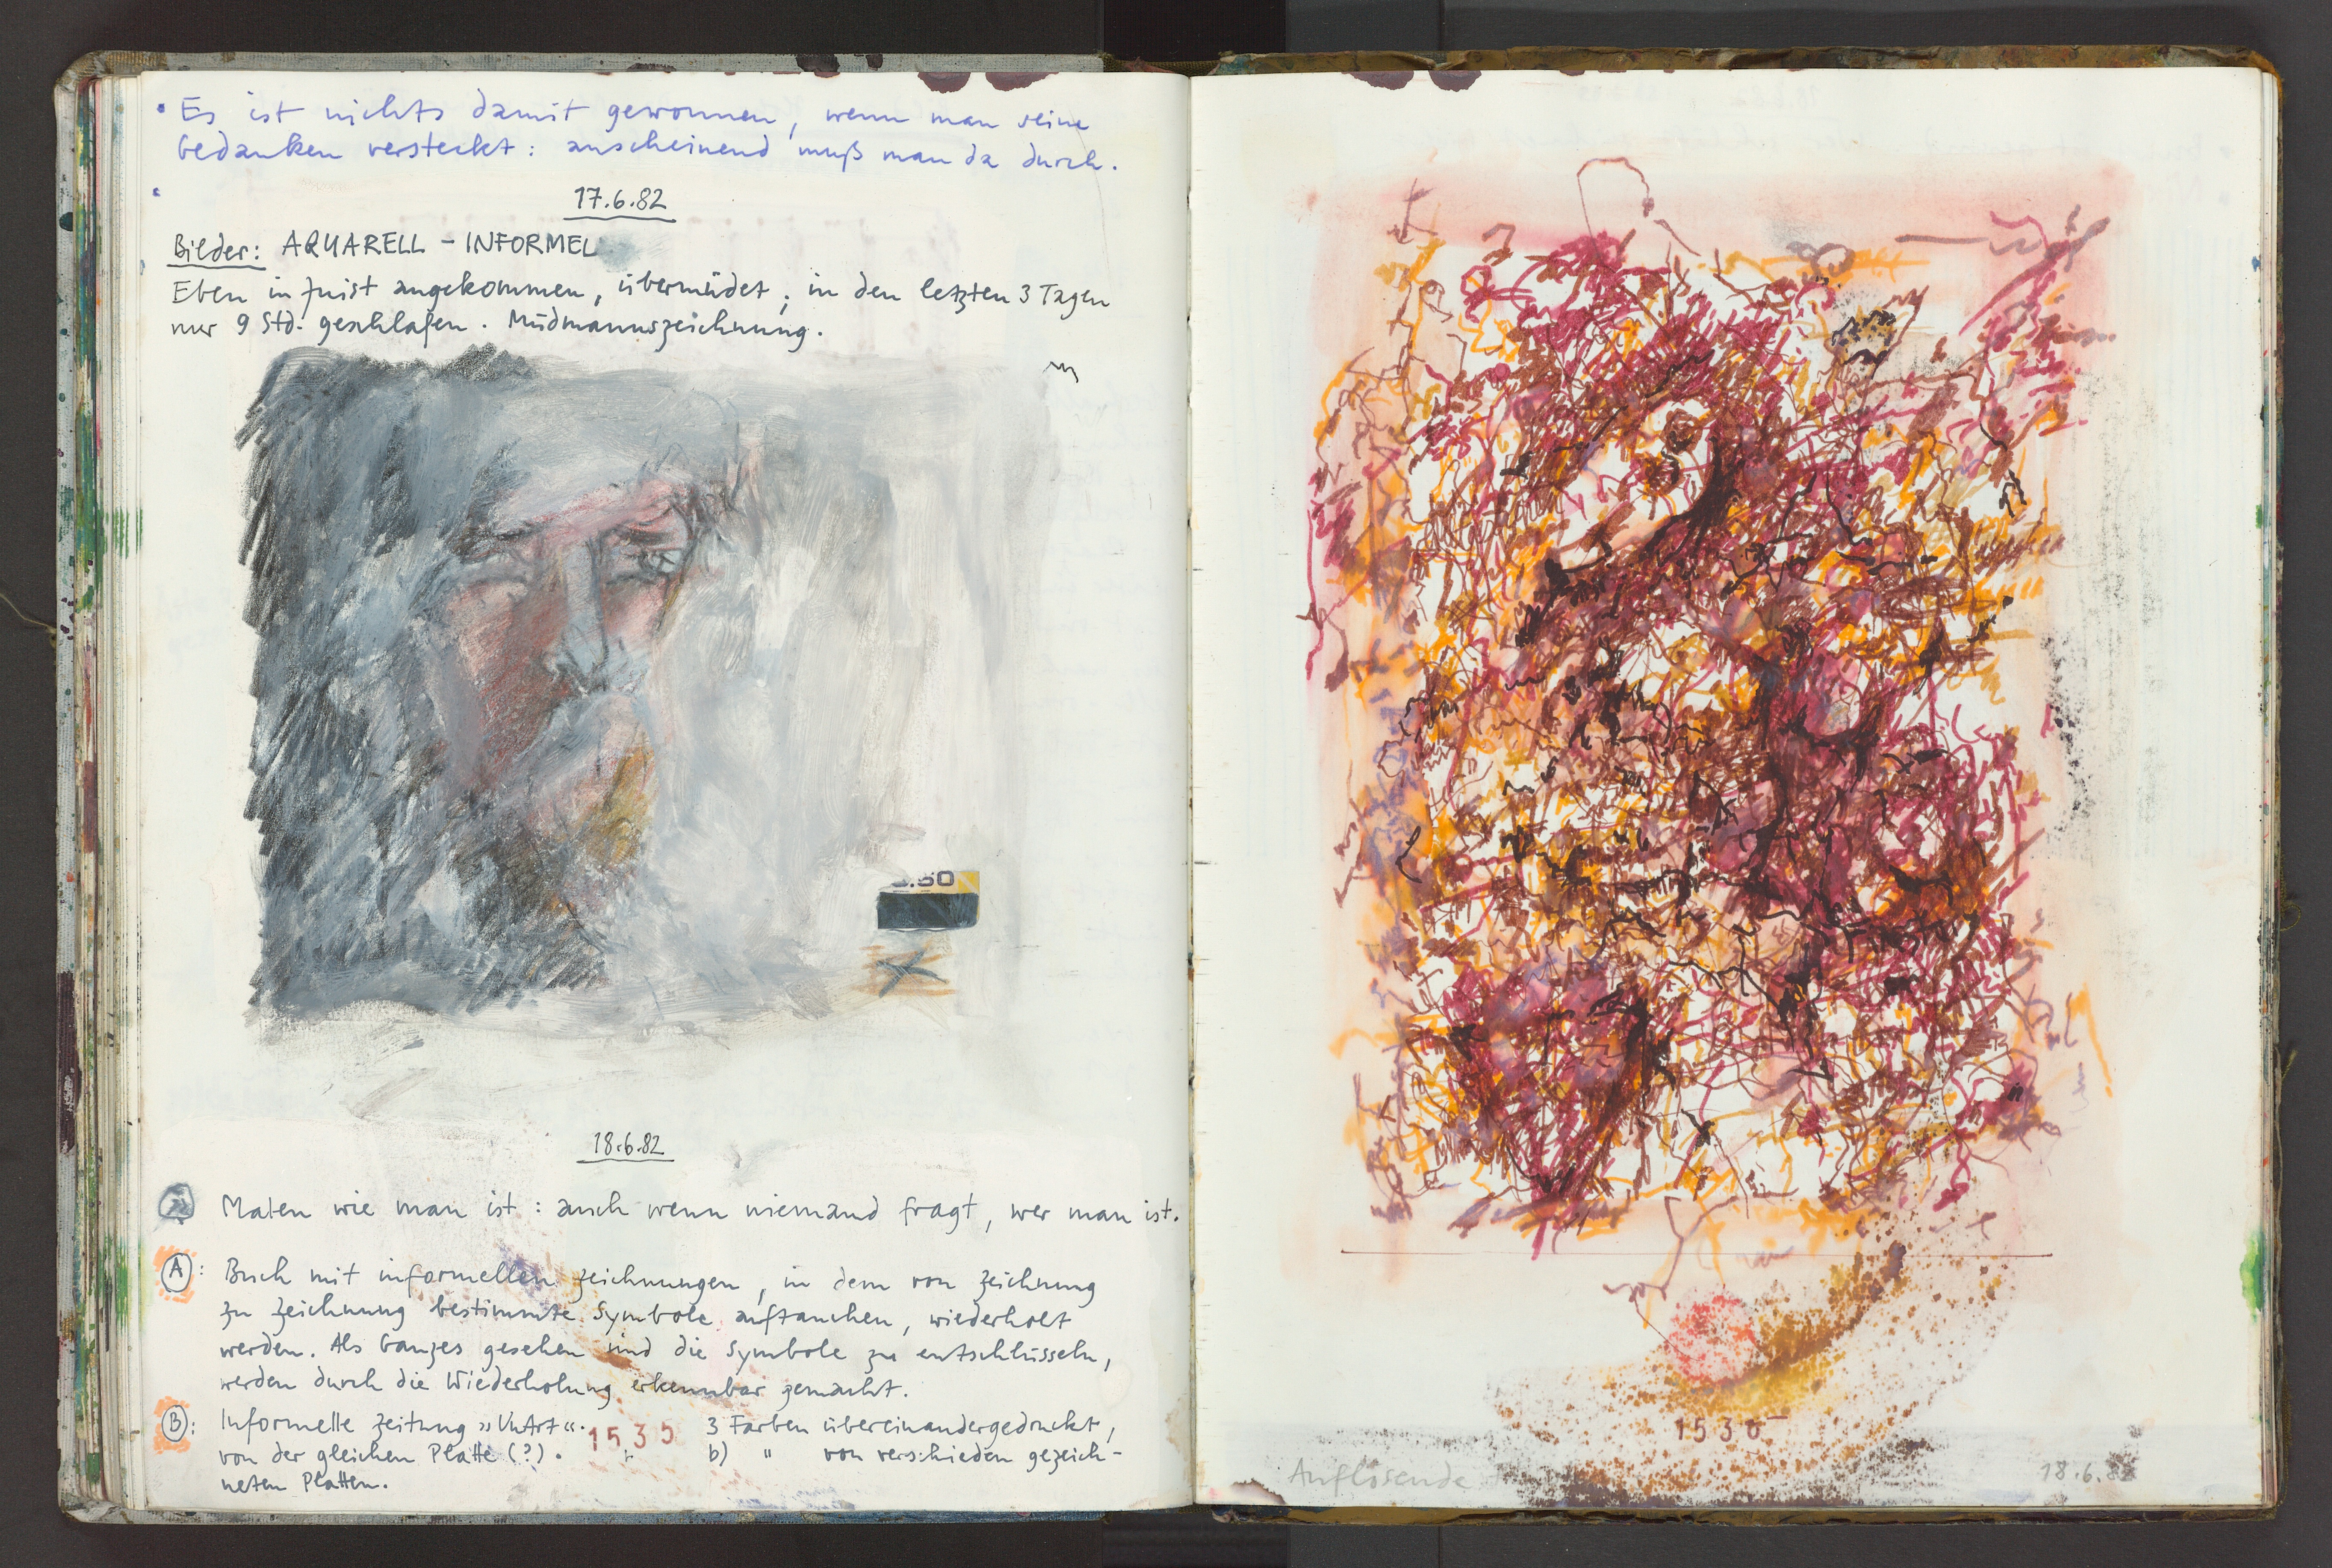 • Es ist nichts damit gewonnen, wenn man seine
Gedanken versteckt: anscheinend muß man da durch.
17.6.82
Bilder: AQUARELL - INFORMEL
Eben in Juist angekommen, übermüdet; in den letzten 3 Tagen
nur 9 Std. geschlafen. Müdmannszeichnung.
.50
18.6.82
Malen wie man ist: auch wenn niemand fragt, wer man ist.
A: Buch mit informellen Zeichnungen, in dem von Zeichnung
zu Zeichnung bestimmte Symbole auftauchen, wiederholt
werden. Als Ganzes gesehen sind die Symbole zu entschlüsseln,
werden durch die Wiederholung erkennbar gemacht.
B: Informelle Zeitung »UnArt«. 1535 3 Farben übereinandergedruckt,
von der gleichen Platte (?). b) " von verschieden gezeich-
neten Platten.
1536
Auflösende 18.6.82